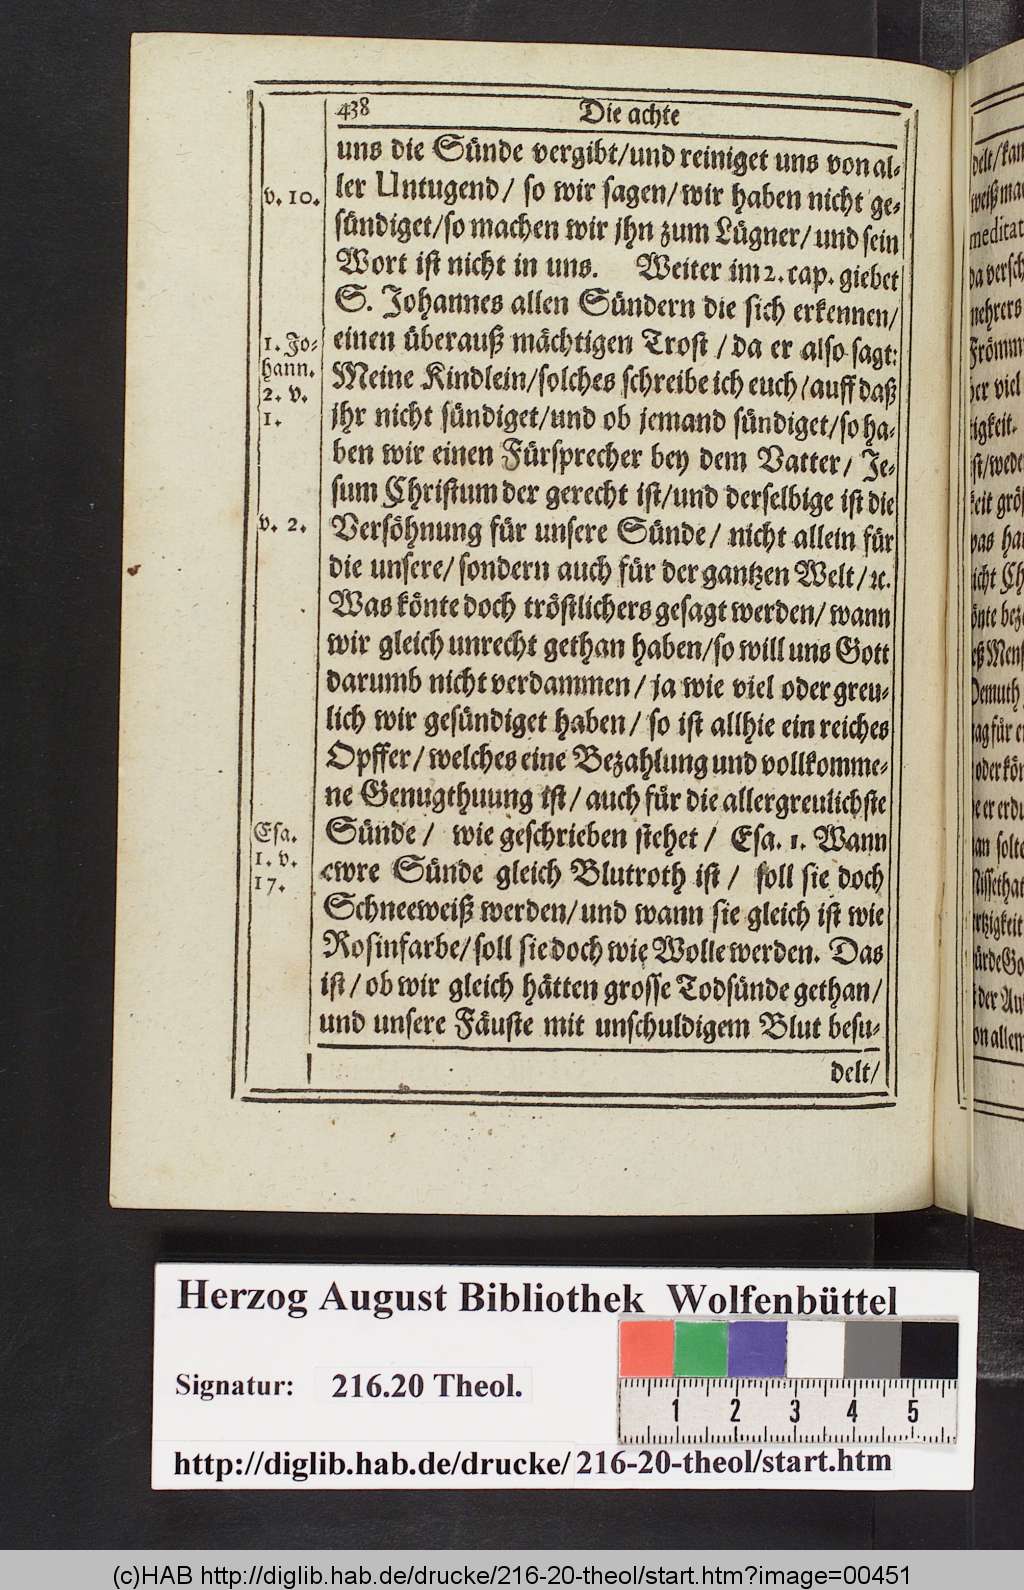 438
Die achte
uns die Sünde vergibt/und reiniget uns von al-
v. 10.
ler Untugend/ so wir sagen/wir haben nicht ge-
sündiget/so machen wir jhn zum Lügner/und sein
Wort ist nicht in uns. Weiter im 2. cap. giebet
S. Johannes allen Sündern die sich erkennen/
1. Jo-
hann.
2. v.
1.
einen überauß mächtigen Trost/da er also sagt:
Meine Kindlein/solches schreibe ich euch/auff daß
jhr nicht sündiget/und ob jemand sündiget/so ha-
ben wir einen Fürsprecher bey dem Vatter/ Je-
sum Christum der gerecht ist/und derselbige ist die
v. 2.
Versöhnung für unsere Sünde/ nicht allein für
die unsere/sondern auch für der gantzen Welt/ ꝛc.
Was könte doch tröstlichers gesagt werden/wann
wir gleich unrecht gethan haben/so will uns Gott
darumb nicht verdammen/ ja wie viel oder greu-
lich wir gesündiget haben/ so ist allhie ein reiches
Opffer/welches eine Bezahlung und vollkomme-
ne Genugthuung ist/auch für die allergreulichste
Esa.
1. v.
17.
Sünde/ wie geschrieben stehet/ Esa. 1. Wann
ewre Sünde gleich Blutroth ist/ soll sie doch
Schneeweiß werden/und wann sie gleich ist wie
Rosinfarbe/soll sie doch wie Wolle werden. Das
ist/ob wir gleich hätten grosse Todsünde gethan/
und unsere Fäuste mit unschuldigem Blut besu-
delt/
delt/kan
weiß
meditat
da versch
mehrers
Frömm
der viel
tigkeit.
ist/wede
keit größ
was hat
nicht Ch
könte bez
Mens
Demuth
für
oder kön
er erdu
solte
Missethat
würde Go
der Au
von allem
Herzog August Bibliothek Wolfenbüttel
Signatur: 216.20 Theol.
1 2 3 4 5
http://diglib.hab.de/drucke/216-20-theol/start.htm
(c)HAB http://diglib.hab.de/drucke/216-20-theol/start.htm?image=00451